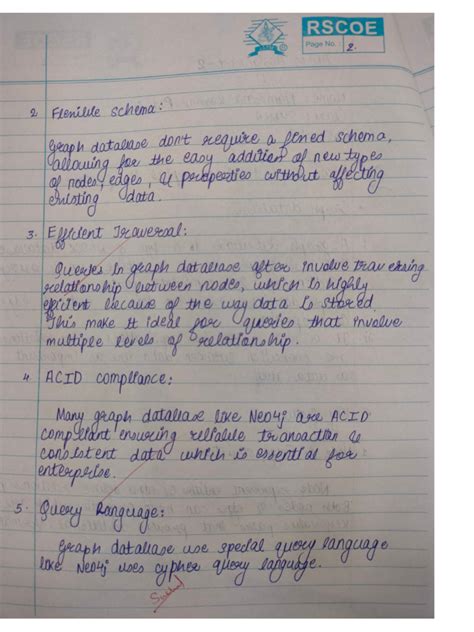 RSCOE
Page No. 2
2 Flexible schema:
Graph database don't require a fixed schema,
allowing for the easy addition of new types
of nodes, edges, & properties without affecting
existing data.
3. Efficient Traversal:
Queries in graph database often involve traversing
relationship between nodes, which is highly
efficient because of the way data is stored.
This make it ideal for queries that involve
multiple levels of relationship.
4. ACID compliance:
Many graph database like Neo4j are ACID
compliant ensuring reliable transaction &
consistent data which is essential for
enterprise.
5. Query Language:
Graph database use special query language
like Neo4j uses cypher query language.